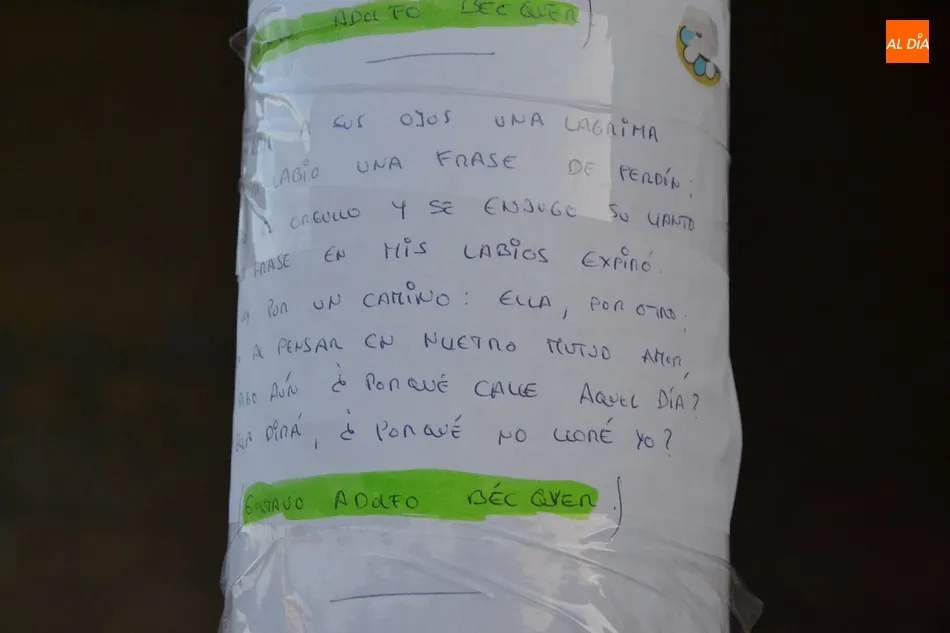 ADOLFO BÉCQUER)
AL DÍA
A SUS OJOS UNA LAGRIMA
LABIO UNA FRASE DE PERDÍN:
ORGULLO Y SE ENJUGO SU LLANTO
FRASE EN MIS LABIOS EXPIRÓ.
POR UN CAMINO: ELLA, POR OTRO;
AL PENSAR EN NUETRO MUTUO AMOR,
AÚN ¿PORQUÉ CALLE AQUEL DÍA?
DIRÁ, ¿PORQUÉ NO LLORÉ YO?
(GUSTAVO ADOLFO BÉCQUER.)